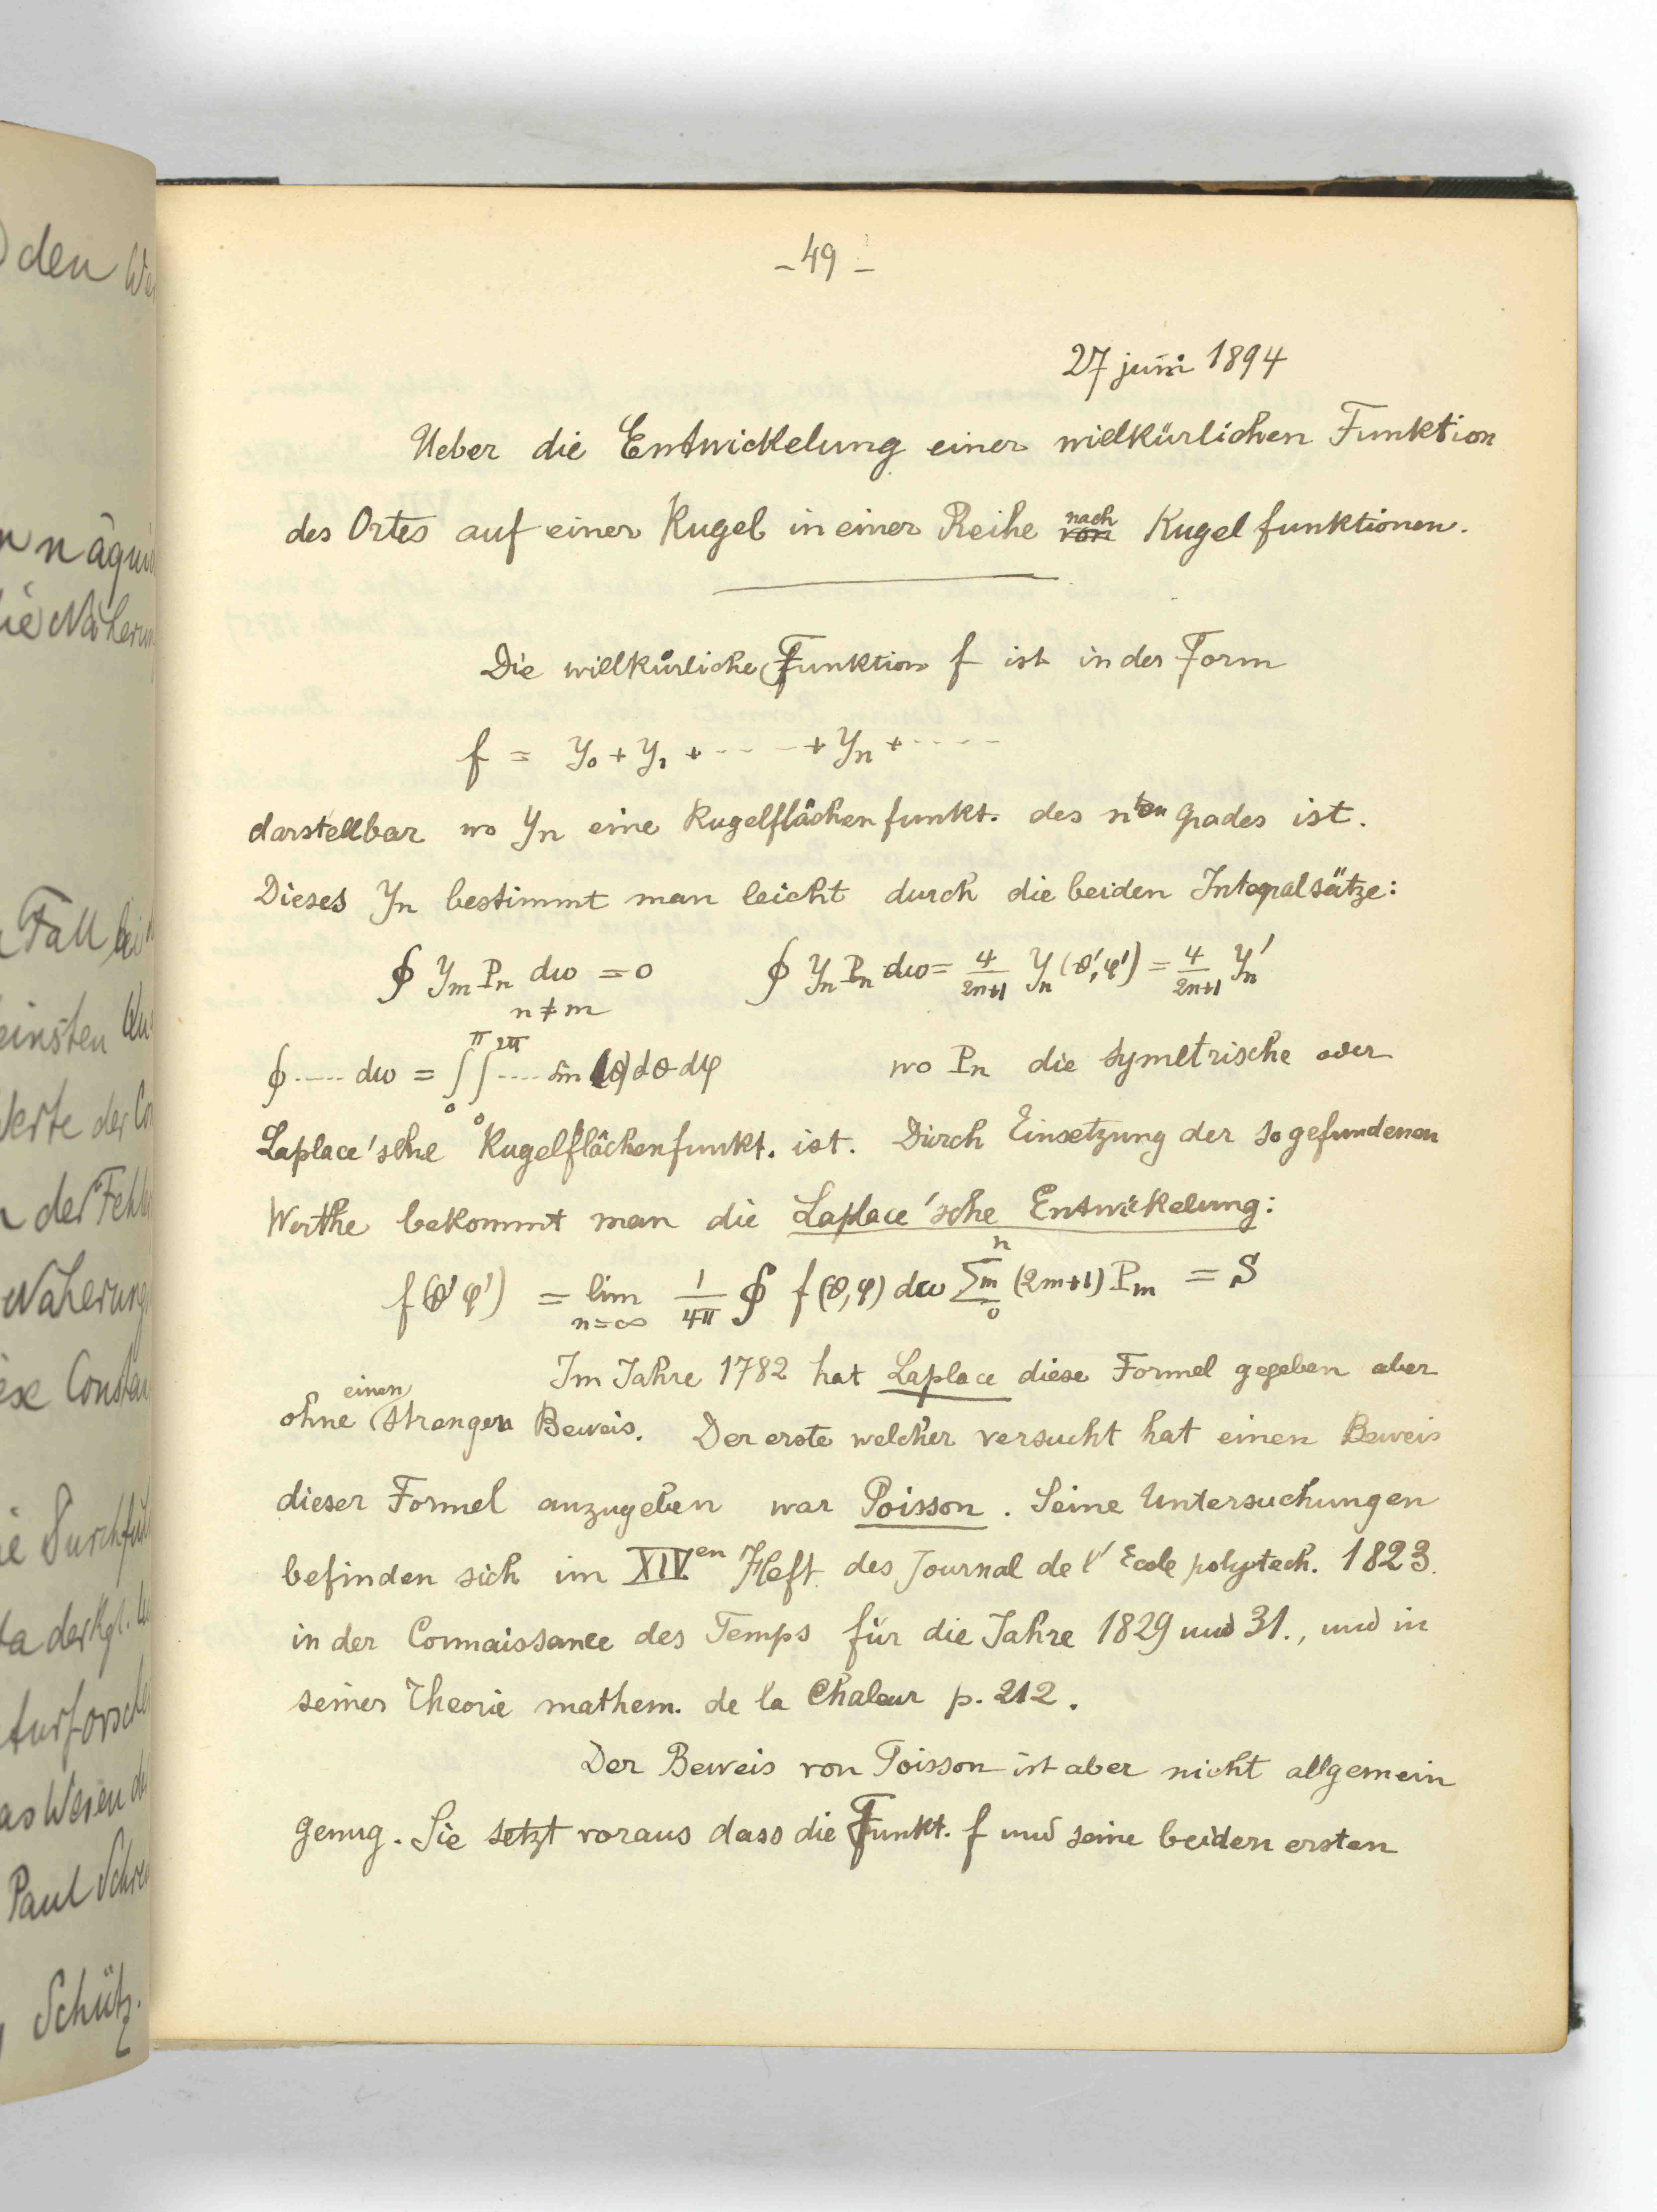 ) den
n näqui
ie Näherun
Fall bei
einsten
Werte der Co
n der Fehl
Näherung
ese Constan
ie Durchfüh
ta der Kgl.
turforsche
as Wesen d
Paul Schre
Schütz.
- 49 -
27 juni 1894
Ueber die Entwickelung einer willkürlichen Funktion
des Ortes auf einer Kugel in einer Reihe nach von Kugelfunktionen.
Die willkürliche Funktion f ist in der Form
f = Y₀ + Y₁ + ---- + Yₙ + ----
darstellbar wo Yₙ eine Kugelflächenfunkt. des nten Grades ist.
Dieses Yₙ bestimmt man leicht durch die beiden Integralsätze:
∮ Yₘ Pₙ dω = 0 n ≠ m ∮ Yₙ Pₙ dω = 4/(2n+1) Yₙ(θ',φ') = 4/(2n+1) Yₙ'
∮ ---- dω = ∫₀^π ∫₀^2π ---- sin θ dθ dφ wo Pₙ die symetrische oder
Laplace'sche Kugelflächenfunkt. ist. Durch Einsetzung der so gefundenen
Werthe bekommt man die Laplace'sche Entwickelung:
f(θ' φ') = lim n=∞ 1/4π ∮ f(θ,φ) dω Σₘ₀ⁿ (2m+1) Pₘ = S
Im Jahre 1782 hat Laplace diese Formel gegeben aber
ohne einen strengen Beweis. Der erste welcher versucht hat einen Beweis
dieser Formel anzugeben war Poisson. Seine Untersuchungen
befinden sich im XIVen Heft des Journal de l'Ecole polytech. 1823.
in der Connaissance des Temps für die Jahre 1829 und 31., und in
seiner Theorie mathem. de la Chaleur p. 212.
Der Beweis von Poisson ist aber nicht allgemein
genug. Sie setzt voraus dass die Funkt. f und seine beiden ersten